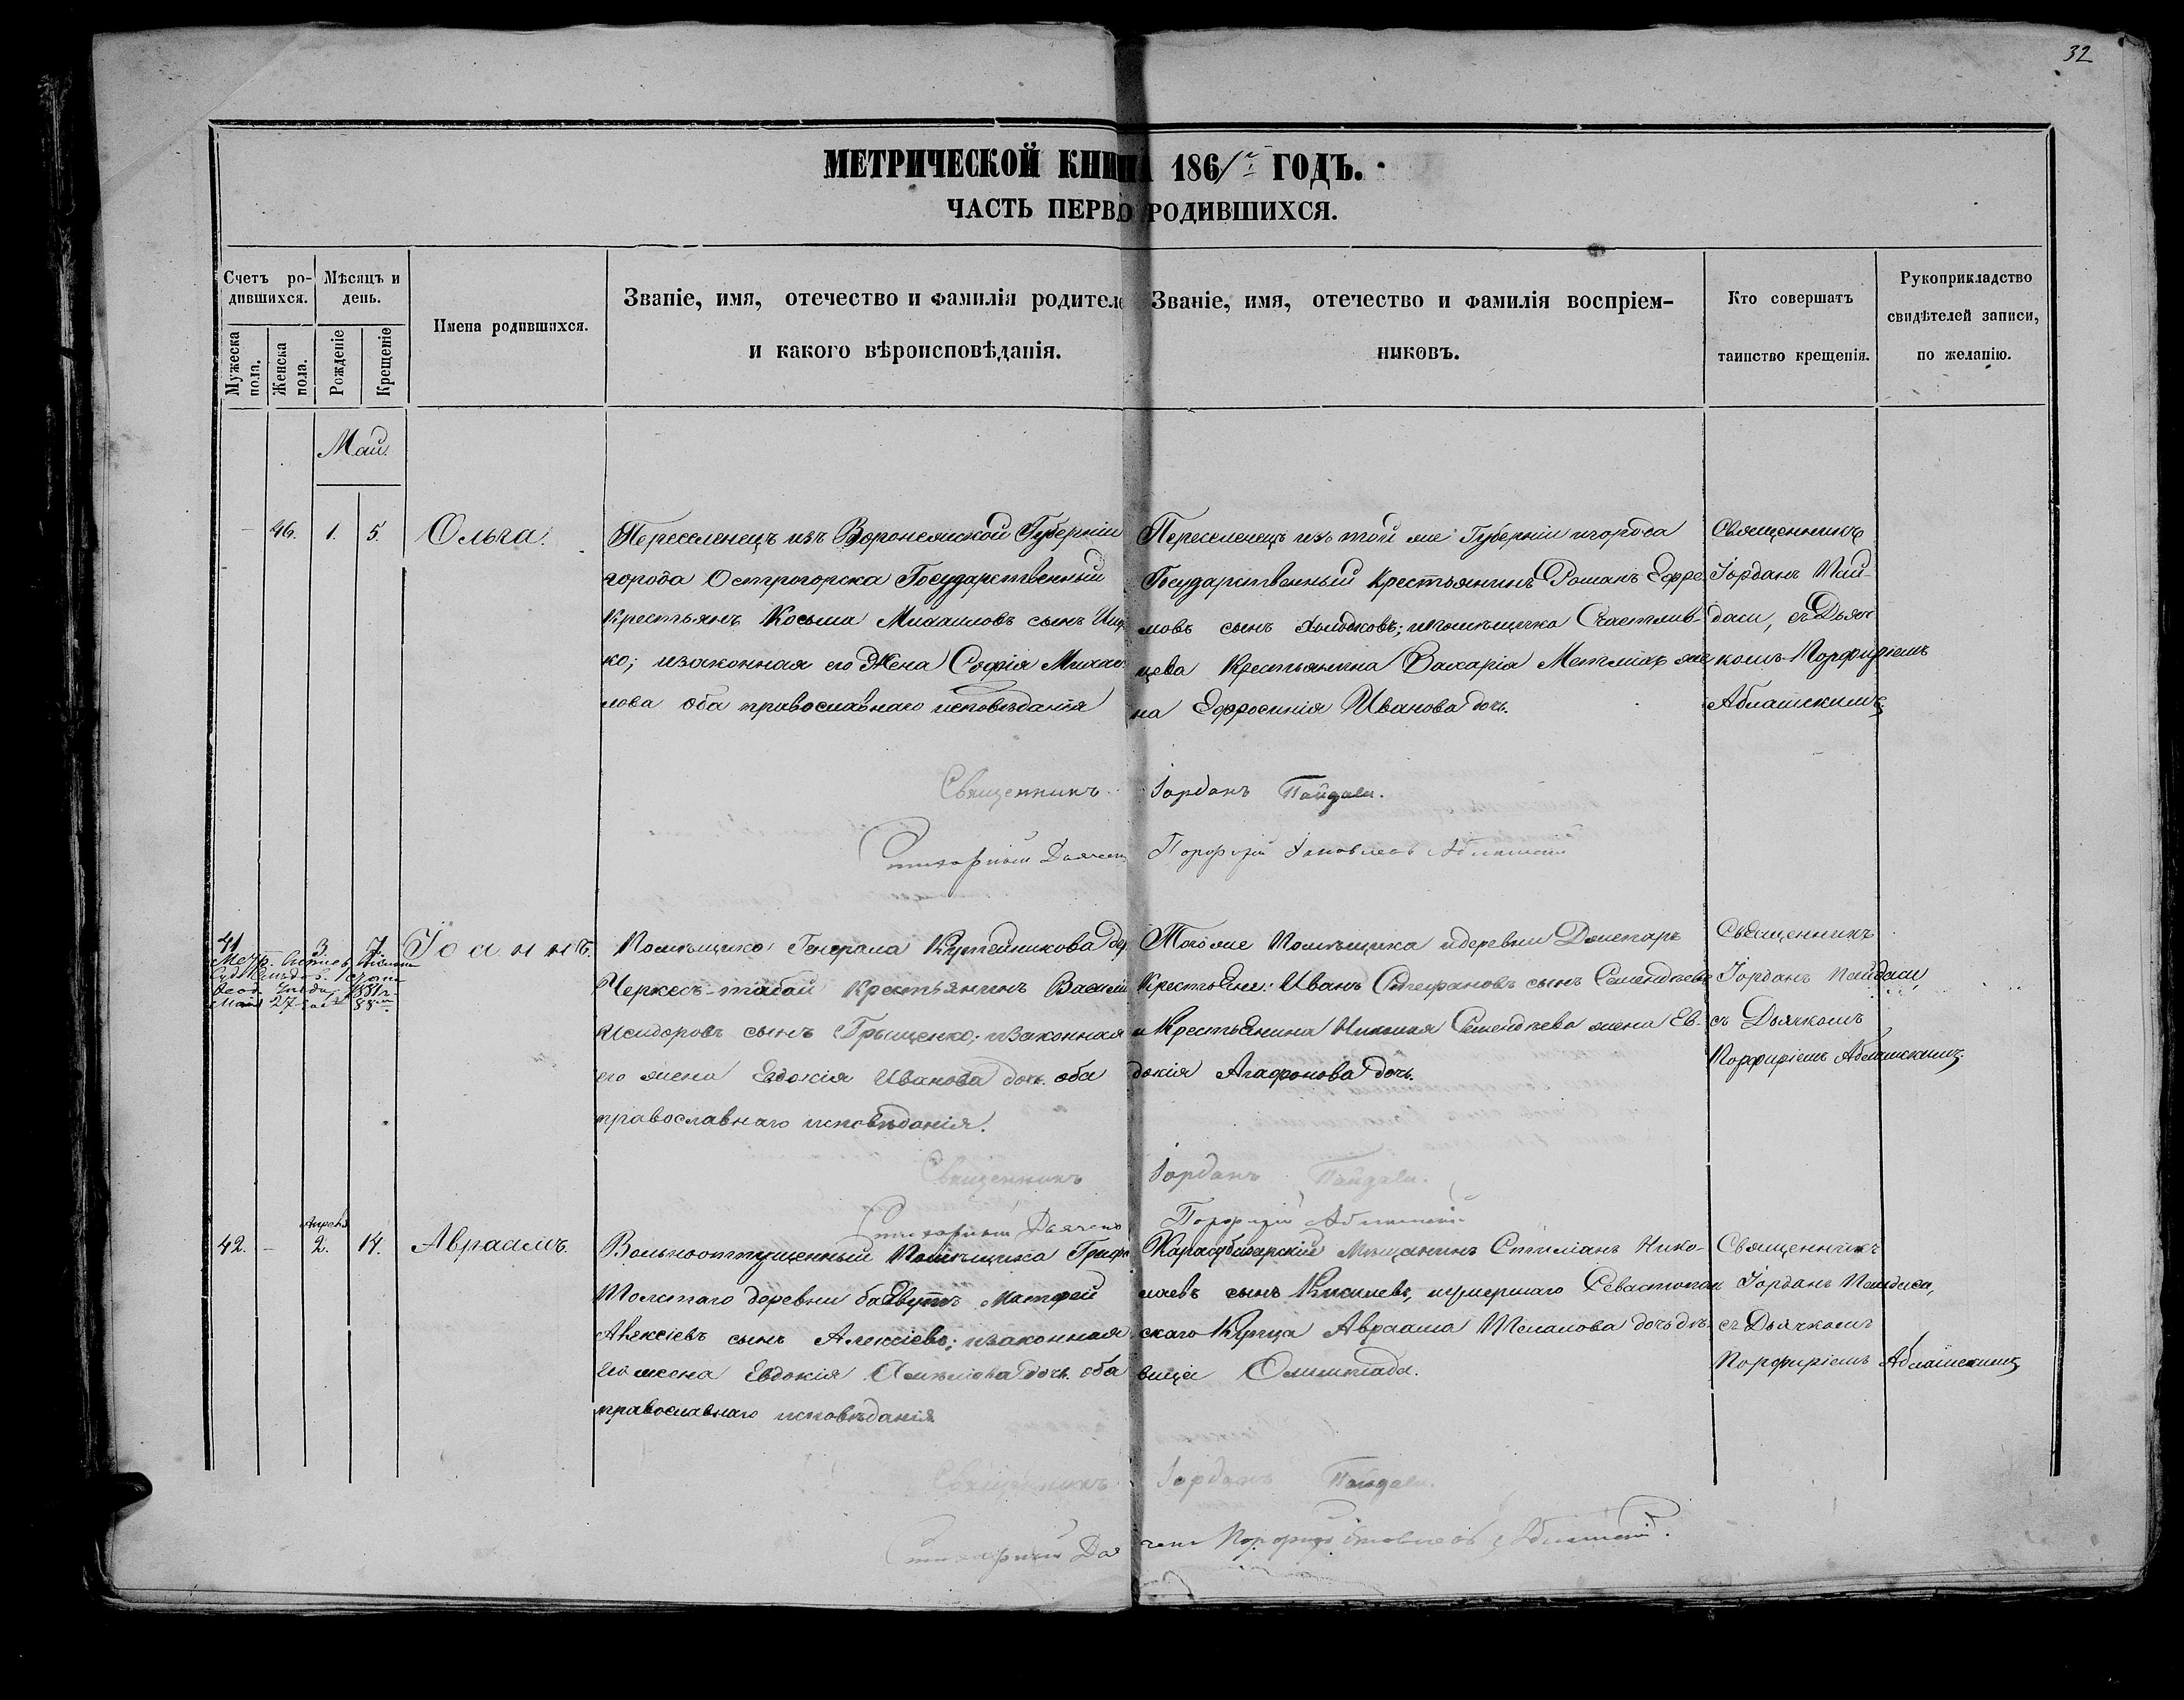 32
МЕТРИЧЕСКОЙ КНИГА 1861й ГОДЪ.
ЧАСТЬ ПЕРВО РОДИВШИХСЯ.
Счетъ ро-
дившихся.
Мужеска пола.
Женска пола.
Мѣсяцъ и
день.
Рожденіе
Крещеніе
Имена родившихся.
Званіе, имя, отечество и фамилія родителе
и какого вѣроисповѣданія.
Званіе, имя, отечество и фамилія воспріем-
никовъ.
Кто совершатъ
таинство крещенія.
Рукоприкладство
свидѣтелей записи,
по желанію.
Май.
46. 1. 5. Ольга.
Переселенецъ изъ Воронежской Губерніи
города Острогорска Государственный
Крестьянъ Косьма Михаиловъ сынъ
ко; изаконная его Жена Софія Михаи
лова оба православнаго исповѣданія
Переселенецъ изъ той же Губерніи игорода
Государственный Крестьянинъ Романъ Ефре
мовъ сынъ Холодковъ; ипомѣщика Счастлив-
цева Крестьянина Захарія жe
на Ефросинія Иванова дочь.
Священникъ
Іорданъ Пай-
даси, съ Дьяч
комъ Порфиріемъ
Аблашскимъ
Священникъ Іорданъ Пайдаси.
Стихарный Дьячекъ Порфирій Яковлевъ Аблашскій
41 3. 7. Іоаннъ.
Метр.
1881 г.
Мая 27
Помѣщика Генерала Кутейникова дер
Черкесъ-табай Крестьянинъ Василій
Исидоровъ сынъ Грыщенко; изаконная
его жена Евдокія Иванова дочь. оба
православнаго исповѣданія.
Того же Помѣщика идеревни
Крестьяне: Иванъ Стефановъ сынъ Семендяевъ
и Крестьянина Семендяева жена Ев-
докія Агафонова дочь.
Священникъ
Іорданъ Пайдаси,
съ Дьячкомъ
Порфиріемъ Аблашскимъ.
Священникъ Іорданъ Пайдаси.
Стихарный Дьячекъ Порфирій Аблашскій
Апрѣля
42. – 2. 14. Авраамъ.
Вольноотпущенный Помѣщика Графа
Толстаго деревни Матфей
Алексіевъ сынъ Алексіевъ; изаконная
его жена Евдокія дочь. оба
православнаго исповѣданія
Карасубазарскій Мѣщанинъ Стиліанъ Нико-
лаевъ сынъ, иумершаго Севастополь
скаго Купца Авраама дочь дѣ-
вица Олимпіада.
Священникъ
Іорданъ Пайдаси,
съ Дьячкомъ
Порфиріемъ Аблашскимъ
Священникъ Іорданъ Пайдаси.
Стихарный Дьячекъ Порфирій Яковлевъ Аблашскій.